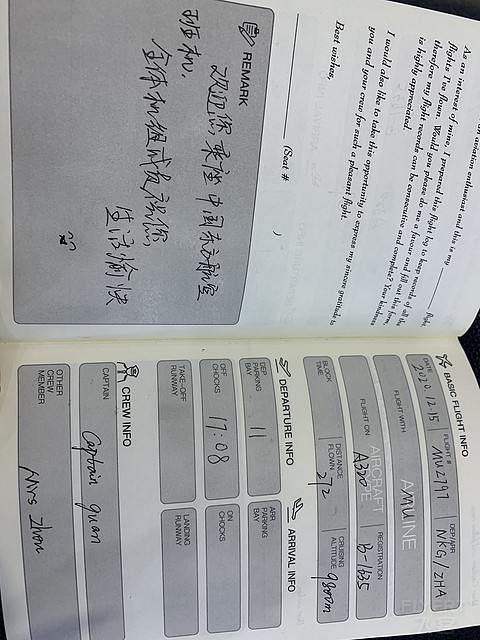 an aviation enthusiast and this is my ________ flight.
As an interest of mine, I prepared this flight log to keep records of all the
flights I've flown. Would you please do me a favour and fill out this form,
therefore my flight records can be consecutive and complete? Your kindness
is highly appreciated.
I would also like to take this opportunity to express my sincere gratitude to
you and your crew for such a pleasant flight.
Best wishes,
(Seat # )
REMARK
欢迎您乘座中国东方航空
班机.
全体机组成员祝您
生活愉快
BASIC FLIGHT INFO
DATE 2020.12.15
FLIGHT # MU2797
DEP/ARR NKG/ZHA
FLIGHT WITH
AIRLINE
FLIGHT ON A330
AIRCRAFT
REGISTRATION B-1635
BLOCK TIME
DISTANCE FLOWN 272
CRUISING ALTITUDE 9800m
DEPARTURE INFO
ARRIVAL INFO
DEP PARKING BAY 11
ARR PARKING BAY
OFF CHOCKS 17:08
ON CHOCKS
TAKE-OFF RUNWAY
LANDING RUNWAY
CREW INFO
CAPTAIN Captain guan
OTHER CREW MEMBER Mrs Zhou